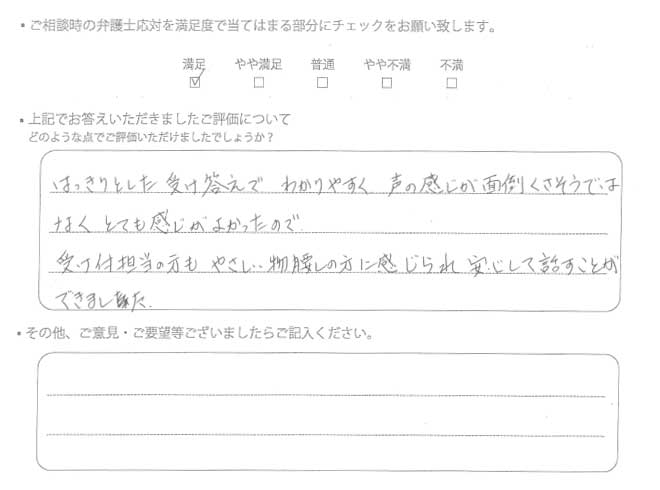 ・ご相談時の弁護士応対を満足度で当てはまる部分にチェックをお願い致します。
満足 やや満足 普通 やや不満 不満
☑ □ □ □ □
・上記でお答えいただきましたご評価について
どのような点でご評価いただけましたでしょうか？
はっきりとした 受け答えで わかりやすく 声の感じが面倒くさそうでは
なく とても感じがよかったので
受け付担当の方も やさしい物腰しの方に感じられ 安心して話すことが
できました。
・その他、ご意見・ご要望等ございましたらご記入ください。